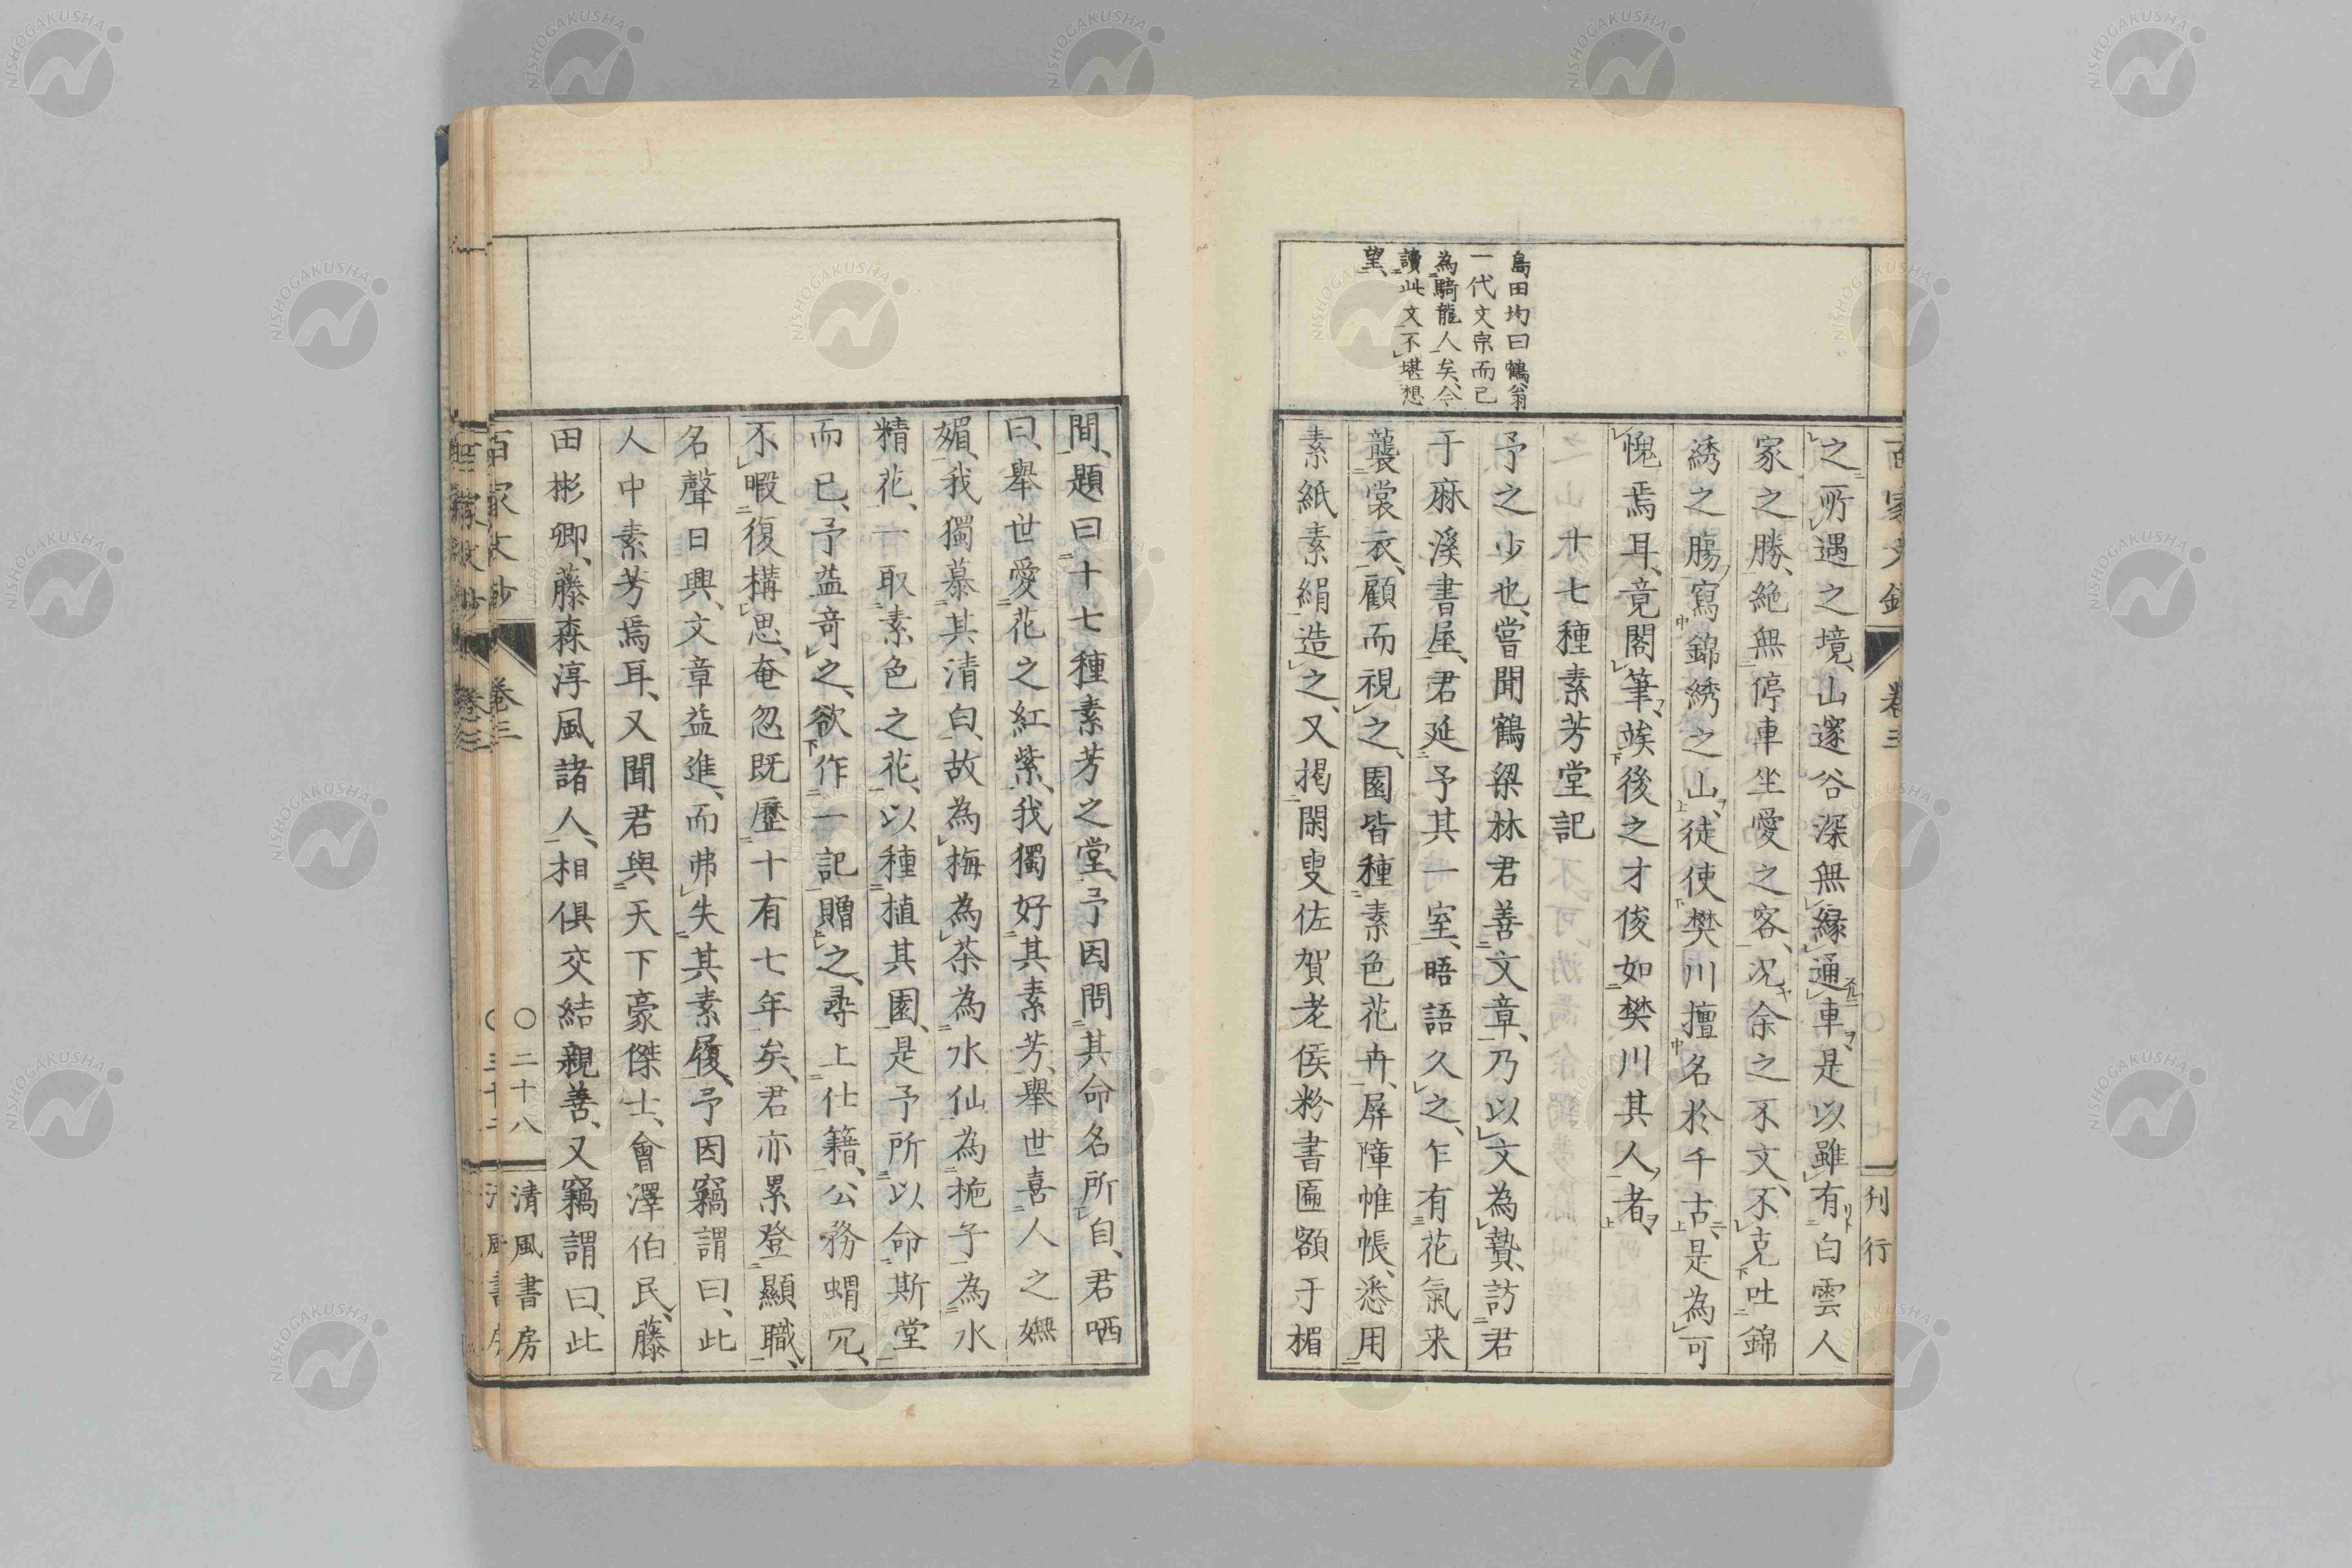 島田均曰鶴翁
一代文宗而已
為騎龍人矣、今
讀此文不堪想
望、
之所遇之境、山邃谷深無緣通車是以雖有白雲人
家之勝、絶無停車坐愛之客、况余之不文、不克吐錦
綉之膓寫錦綉之山、徒使樊川擅名於千古、是為可
愧焉耳、竟閣筆、竢後之才俊如樊川其人者、
十七種素芳堂記
予之少也、嘗聞鶴梁林君善文章、乃以文為贄、訪君
于麻溪書屋、君延予其一室、晤語久之、乍有花氣来
襲裳衣、顧而視之、園皆種素色花卉、屏障帷帳、悉用
素紙素絹造之、又掲閑叟佐賀老侯粉書匾額于楣
間、題曰十七種素芳之堂、予因問其命名所自、君哂
曰、舉世愛花之紅紫、我獨好其素芳、舉世喜人之嫵
媚、我獨慕其清白、故為梅為茶為水仙為梔子為水
精花、一取素色之花、以種植其園、是予所以命斯堂
而已、予益竒之、欲作一記贈之、尋上仕籍、公務蝟冗、
不暇復構思、奄忽既歷十有七年矣、君亦累登顯職、
名聲日興、文章益進、而弗失其素履、予因竊謂曰、此
人中素芳焉耳、又聞君與天下豪傑士、會澤伯民、藤
田彬卿、藤森淳風諸人、相倶交結親善、又竊謂曰、此
百家文鈔 卷三 ○二十八 清風書房